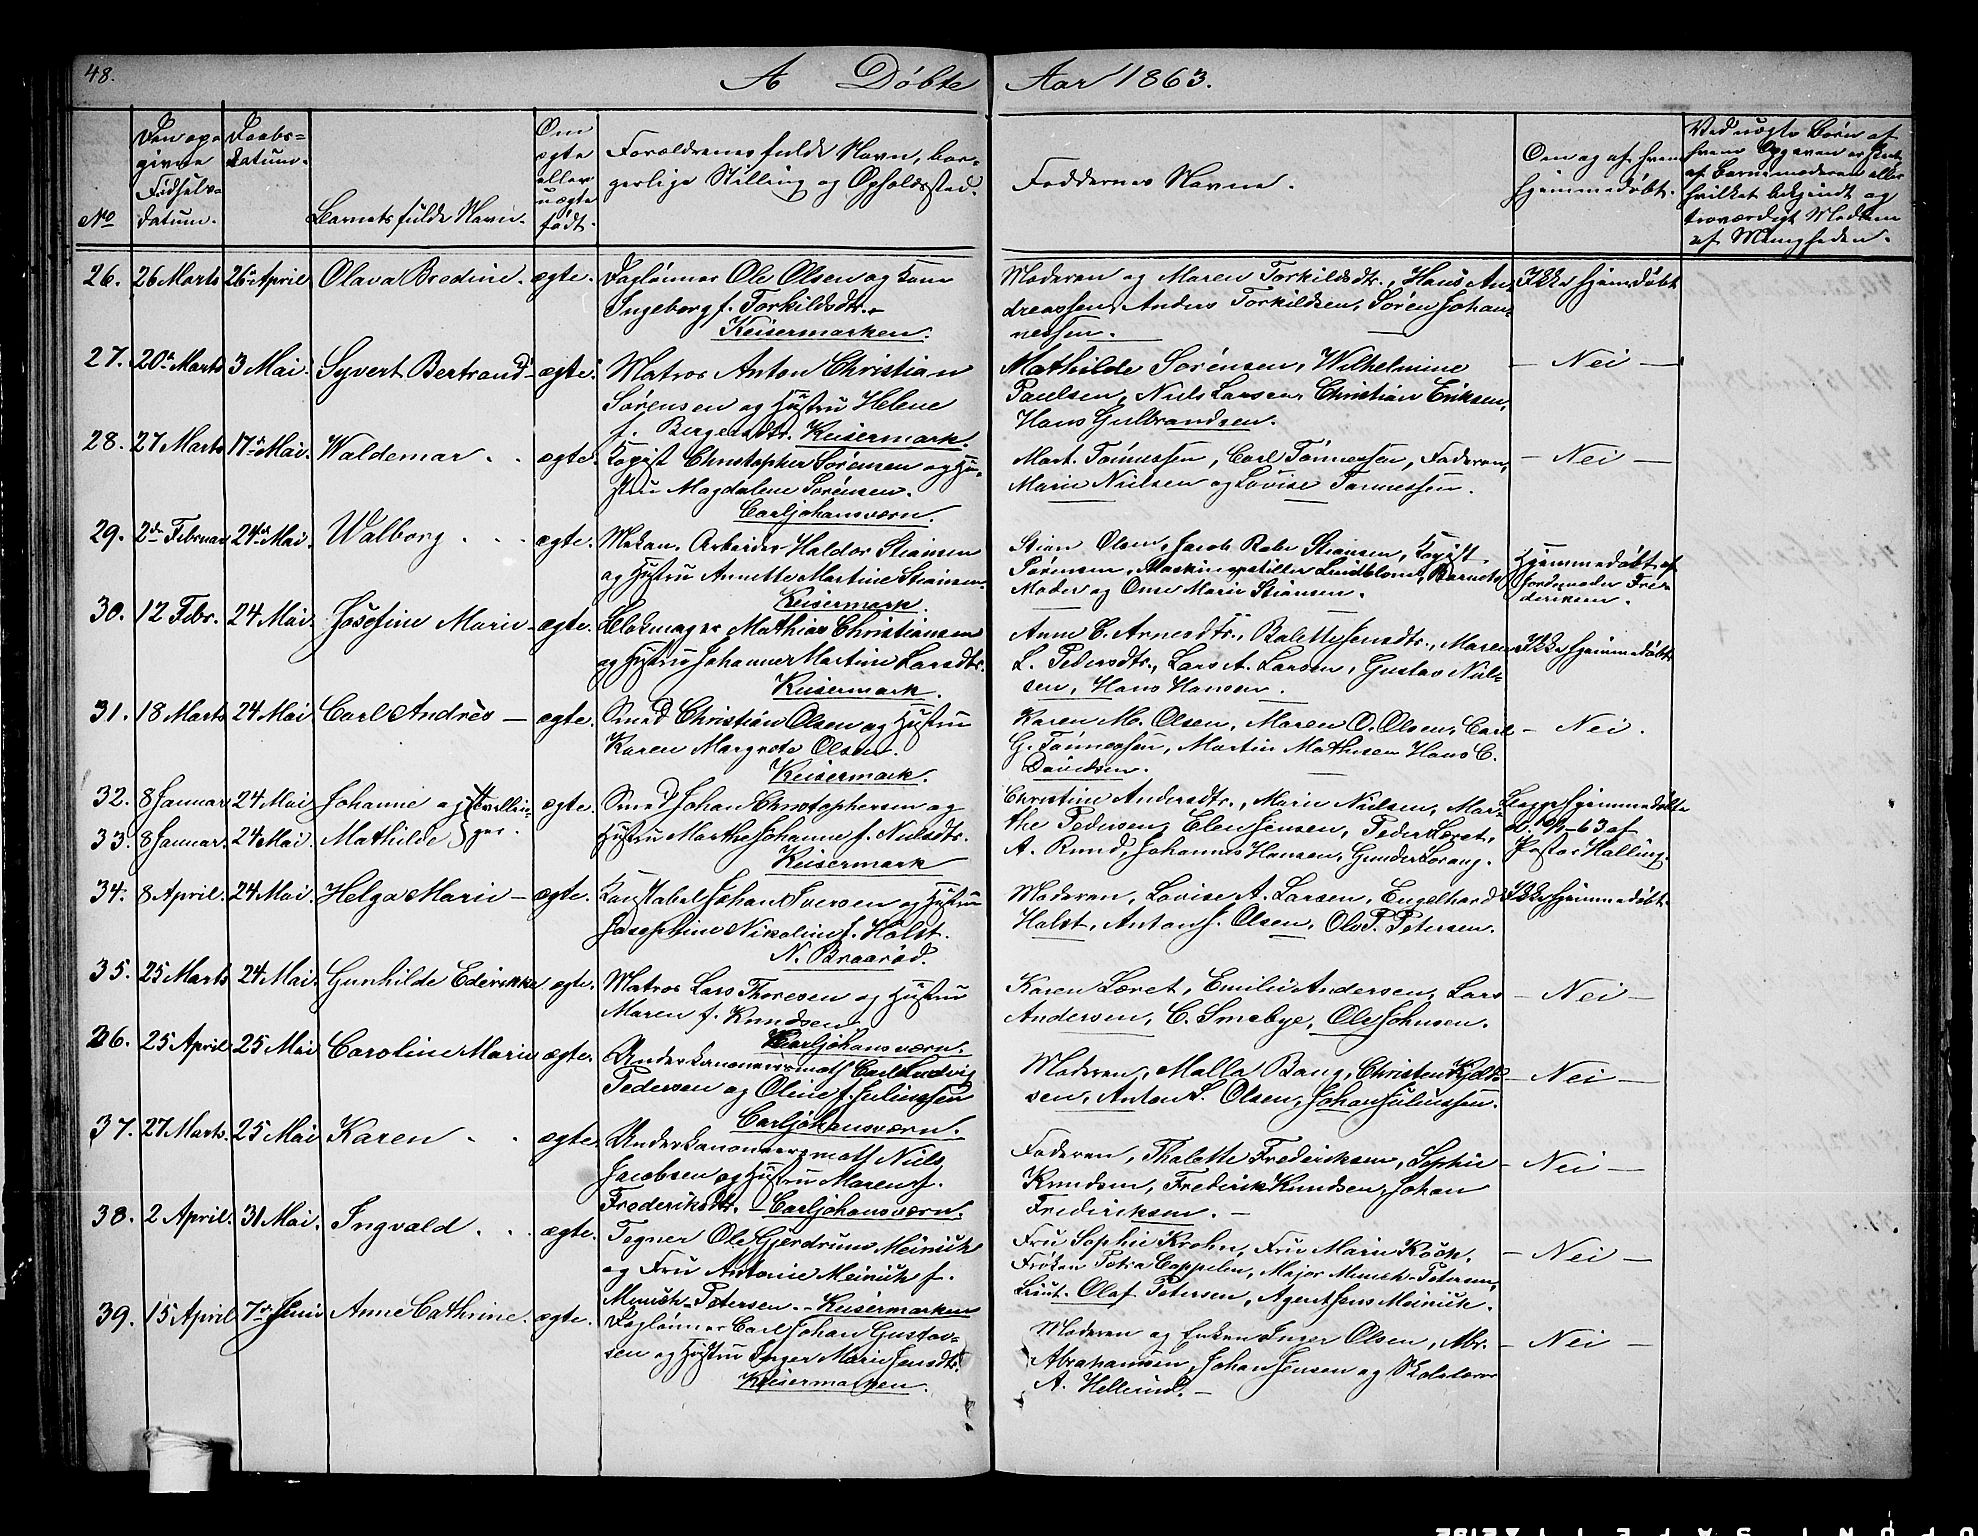 48.
A Døbte Aar 1863.
No
Den op-
givne
Fødsels-
datum.
Daabs-
datum.
Barnets fulde Navn.
Om
ægte
eller
uægte
født.
Forældrenes fulde Navn, bor-
gerlige Stilling og Opholdssted.
Faddernes Navne.
Om og af hvem
hjemmedøbt.
Ved uægte Børn af
hvem Opgaven er skeet
af Barnemoderen eller
hvilket bekjendt og
troværdigt Medlem
af Menigheden.
26. 26 Marts 26 April Olava Bredine. ægte. Daglønner Ole Olsen og Kone
Ingeborg f. Torkildsdtr.
Keisermarken.
Moderen og Maren Torkildsdtr., Hans An-
dreassen, Anders Torkildsen, Søren Johan-
nessen.
Ikke hjemmedøbt
27. 20 Marts 3 Mai. Syvert Bertrand ægte. Matros Anton Christian
Sørensen og Hustru Helene
f. Bergersdtr. Keisermark.
Mathilde Sørensen, Wilhelmine
Paulsen, Niels Larsen, Christian Eriksen,
Hans Gulbrandsen.
— Nei —
28. 27 Marts 17 Mai. Waldemar . . ægte. Kopist Christopher Sørensen og Hu-
stru Magdalene Sørensen.
Carljohansværn.
Mart. Tønnessen, Carl Tønnessen, Faderen,
Marie Nielsen og Lovise Tønnessen.
— Nei —
29. 2den Februar 24de Mai. Walborg . . . ægte. Mekan. Arbeider Haldor Stiansen
og Hustru Annette Martine Stiansen.
Keisermark.
Stian Olsen, Jacob Rabe Stiansen, Kopist
Sørensen, Maskinopstiller Lindblom, Barnets
Moder og Marie Stiansen.
Hjemmedøbt af
Jordemoder Fre-
deriksen.
30. 12 Febr. 24 Mai. Josefine Marie ægte. Blokmager Mathias Christiansen
og Hustru Johanne Martine Larsdtr.
Keisermark.
Anne C. Arnesdtr., Balette Jensdtr., Maren
L. Pedersdtr., Lars A. Larsen, Gustav Niel-
sen, Hans Hansen.
Ikke hjemmedøbt
31. 18 Marts 24 Mai Carl Andrès — ægte. Smed Christian Olsen og Hustru
Karen Margrete Olsen.
Keisermark.
Karen M. Olsen, Maren O. Olsen, Carl
G. Tønnessen, Martin Mathisen Hans C.
Davidsen.
— Nei.
32. 8 Januar 24 Mai Johanne og Tvillin- ægte. Smed Johan Christophersen og
33. 8 Januar. 24 Mai. Mathilde ger. Hustru Marthe Johanne f. Nielsdtr.
Keisermark
Christine Andersdtr., Marie Nielsen, Mar-
the Pedersen, Elen Jensen, Peder Læret,
A. Rund, Johannes Hansen, Gunder Lorang.
Begge hjemmedøbte
63 af
Pastor Halling.
34. 8 April. 24 Mai. Helga Marie — ægte. Konstabel Johan Iversen og Hustru
Josephine Nikoline f. Holst.
N. Braarød.
Moderen, Lovise A. Larsen, Engelhard
Holst, Anton J. Olsen, Ole P. Petersen.
Ikke hjemmedøbt.
35. 25 Marts 24 Mai. Gunhilde Ederikke ægte. Matros Lars Thoresen og Hustru
Maren f. Knudsen
Carljohansværn.
Karen Læret, Emilie Andersen, Lars
Andersen, C. Smebye, Ole Johnsen.
— Nei —
36. 25 April 25 Mai Caroline Marie ægte. Underkanoneersmath Carl Ludvig
Pedersen og Oline f. Juliussen
Carljohansværn.
Moderen, Malla Bang, Christen Kjeld-
sen, Anton L. Olsen, Johan Juliussen.
— Nei —
37. 27 Marts. 25 Mai Karen . . ægte. Underkanoneersmath Niels
Jacobsen og Hustru Maren f.
Frederiksdtr. — Carljohansværn.
Faderen, Thalette Frederiksen, Sophie
Knudsen, Frederik Knudsen, Johan
Frederiksen. —
— Nei —
38. 2 April. 31 Mai. Ingvald . . . ægte. Tegner Ole Gjerdrum Meinich
og Fru Antonie Meinich f.
Munch-Petersen. — Keisermarken
Fru Sophie Krohn, Fru Marie Koch,
Frøken Petra Cappelen, Major Munch-Petersen,
Lieut. Olaf Petersen, Agent Jens Meinich.
— Nei —
39. 15 April 7de Juni Anne Cathrine. ægte. Daglønner Carl Johan Gustav-
sen og Hustru Inger Marie Jensdtr.
Keisermarken.
Moderen og Enken Inger Olsen, Abr.
Abrahamsen, Johan Jensen og Skolelærer
A. Hellerud. —
— Nei —